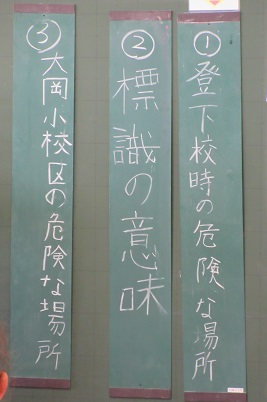 ①登下校時の危険な場所
②標識の意味
③大岡小校区の危険な場所